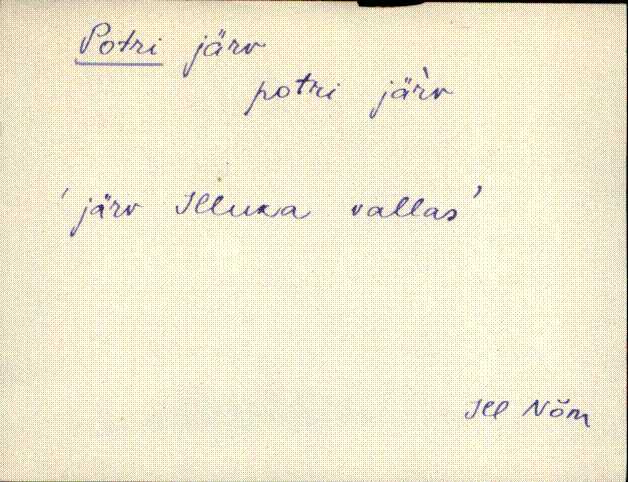 Potri järv
potri jär̀v
'järv Illuka vallas'
Ill Nõm